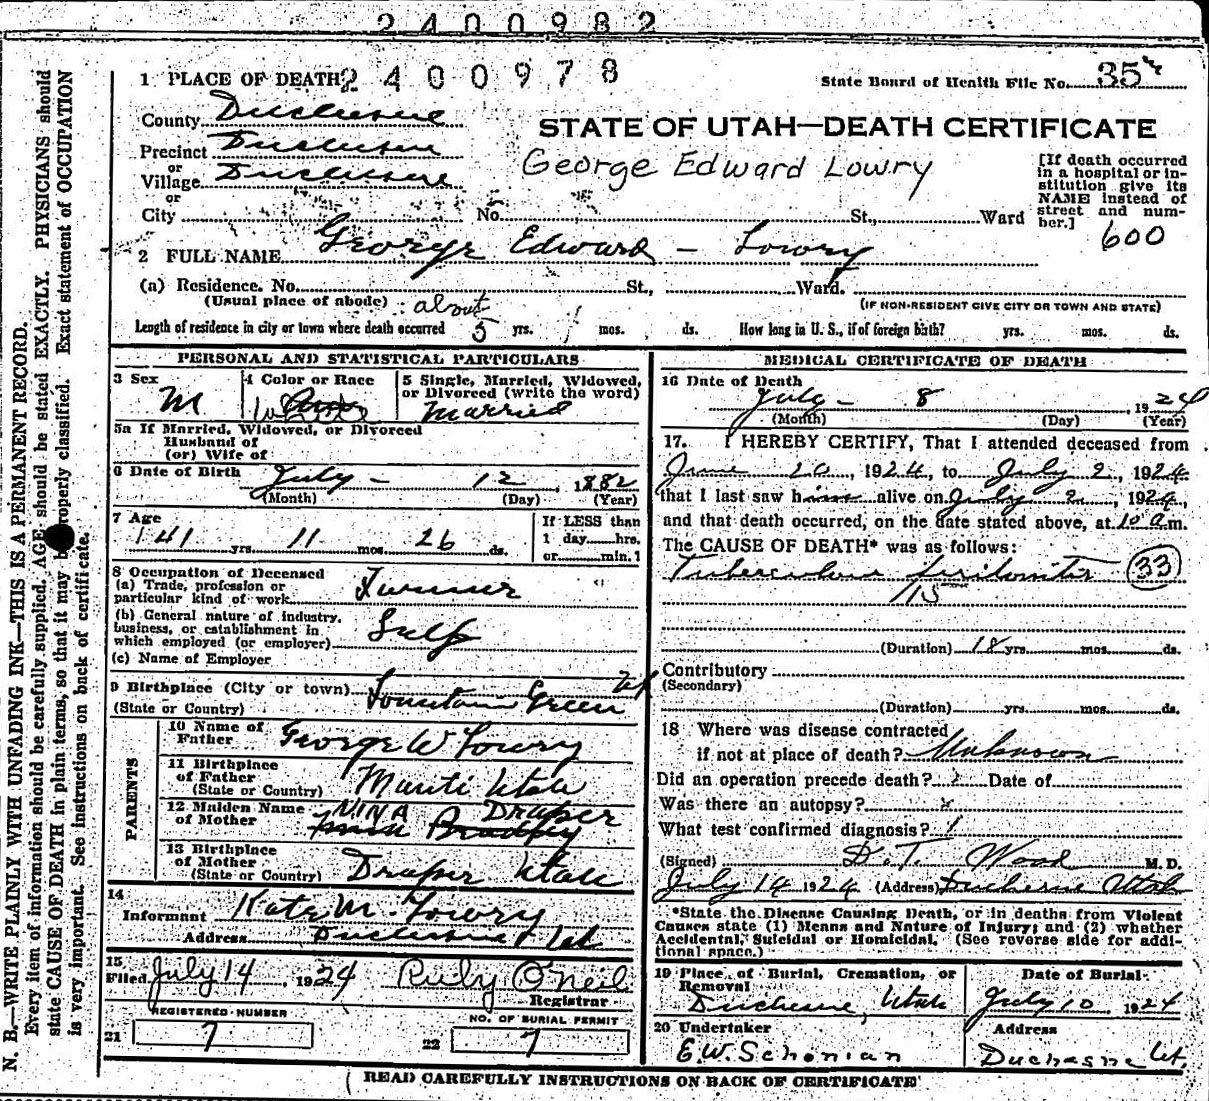 2400982
1 PLACE OF DEATH 2400978
State Board of Health File No. 35
County Duchesne
STATE OF UTAH—DEATH CERTIFICATE
Precinct Duchesne
or
Village Duchesne
or
City No. St., Ward
George Edward Lowry
[If death occurred
in a hospital or in-
stitution give its
NAME instead of
street and num-
ber.]
600
2 FULL NAME George Edward – Lowry
(a) Residence. No. St., Ward.
(Usual place of abode)
(IF NON-RESIDENT GIVE CITY OR TOWN AND STATE)
about
Length of residence in city or town where death occurred 5 yrs. mos. ds. How long in U. S., if of foreign birth? yrs. mos. ds.
PERSONAL AND STATISTICAL PARTICULARS
3 Sex
M
4 Color or Race
White
5 Single, Married, Widowed,
or Divorced (write the word)
Married
5a If Married, Widowed, or Divorced
Husband of
(or) Wife of
6 Date of Birth July – 12, 1882
(Month) (Day) (Year)
7 Age
41 yrs. 11 mos. 26 ds.
If LESS than
1 day hrs.
or min.
8 Occupation of Deceased
(a) Trade, profession or
particular kind of work Farmer
(b) General nature of industry,
business, or establishment in
which employed (or employer) Self
(c) Name of Employer
9 Birthplace (City or town) Fountain Green Ut
(State or Country)
PARENTS
10 Name of
Father George W Lowry
11 Birthplace
of Father
(State or Country) Manti Utah
12 Maiden Name
of Mother NINA DRAPER
13 Birthplace
of Mother
(State or Country) Draper Utah
14
Informant Kate M. Lowry
Address Duchesne Ut
15
Filed July 14, 1924 Ruby O'Neil
Registrar
REGISTERED NUMBER
21 7
NO. OF BURIAL PERMIT
22 7
MEDICAL CERTIFICATE OF DEATH
16 Date of Death
July – 8, 1924
(Month) (Day) (Year)
17. I HEREBY CERTIFY, That I attended deceased from
June 20, 1924, to July 2, 1924
that I last saw him alive on July 2, 1924,
and that death occurred, on the date stated above, at 10 a.m.
The CAUSE OF DEATH* was as follows:
Tubercular peritonitis 33
(Duration) 18 yrs. mos. ds.
Contributory
(Secondary)
(Duration) yrs. mos. ds.
18 Where was disease contracted
if not at place of death? Unknown
Did an operation precede death? Date of
Was there an autopsy?
What test confirmed diagnosis?
(Signed) D. T. Wood M. D.
July 14 1924 (Address) Duchesne Utah
*State the Disease Causing Death, or in deaths from Violent
Causes state (1) Means and Nature of Injury; and (2) whether
Accidental, Suicidal or Homicidal. (See reverse side for addi-
tional space.)
19 Place of Burial, Cremation, or
Removal
Duchesne, Utah
Date of Burial
July 10 1924
20 Undertaker
E.W. Schonian
Address
Duchesne Ut.
READ CAREFULLY INSTRUCTIONS ON BACK OF CERTIFICATE
N. B.—WRITE PLAINLY WITH UNFADING INK—THIS IS A PERMANENT RECORD.
Every item of information should be carefully supplied. AGE should be stated EXACTLY. PHYSICIANS should
state CAUSE OF DEATH in plain terms, so that it may be properly classified. Exact statement of OCCUPATION
is very important. See instructions on back of certificate.